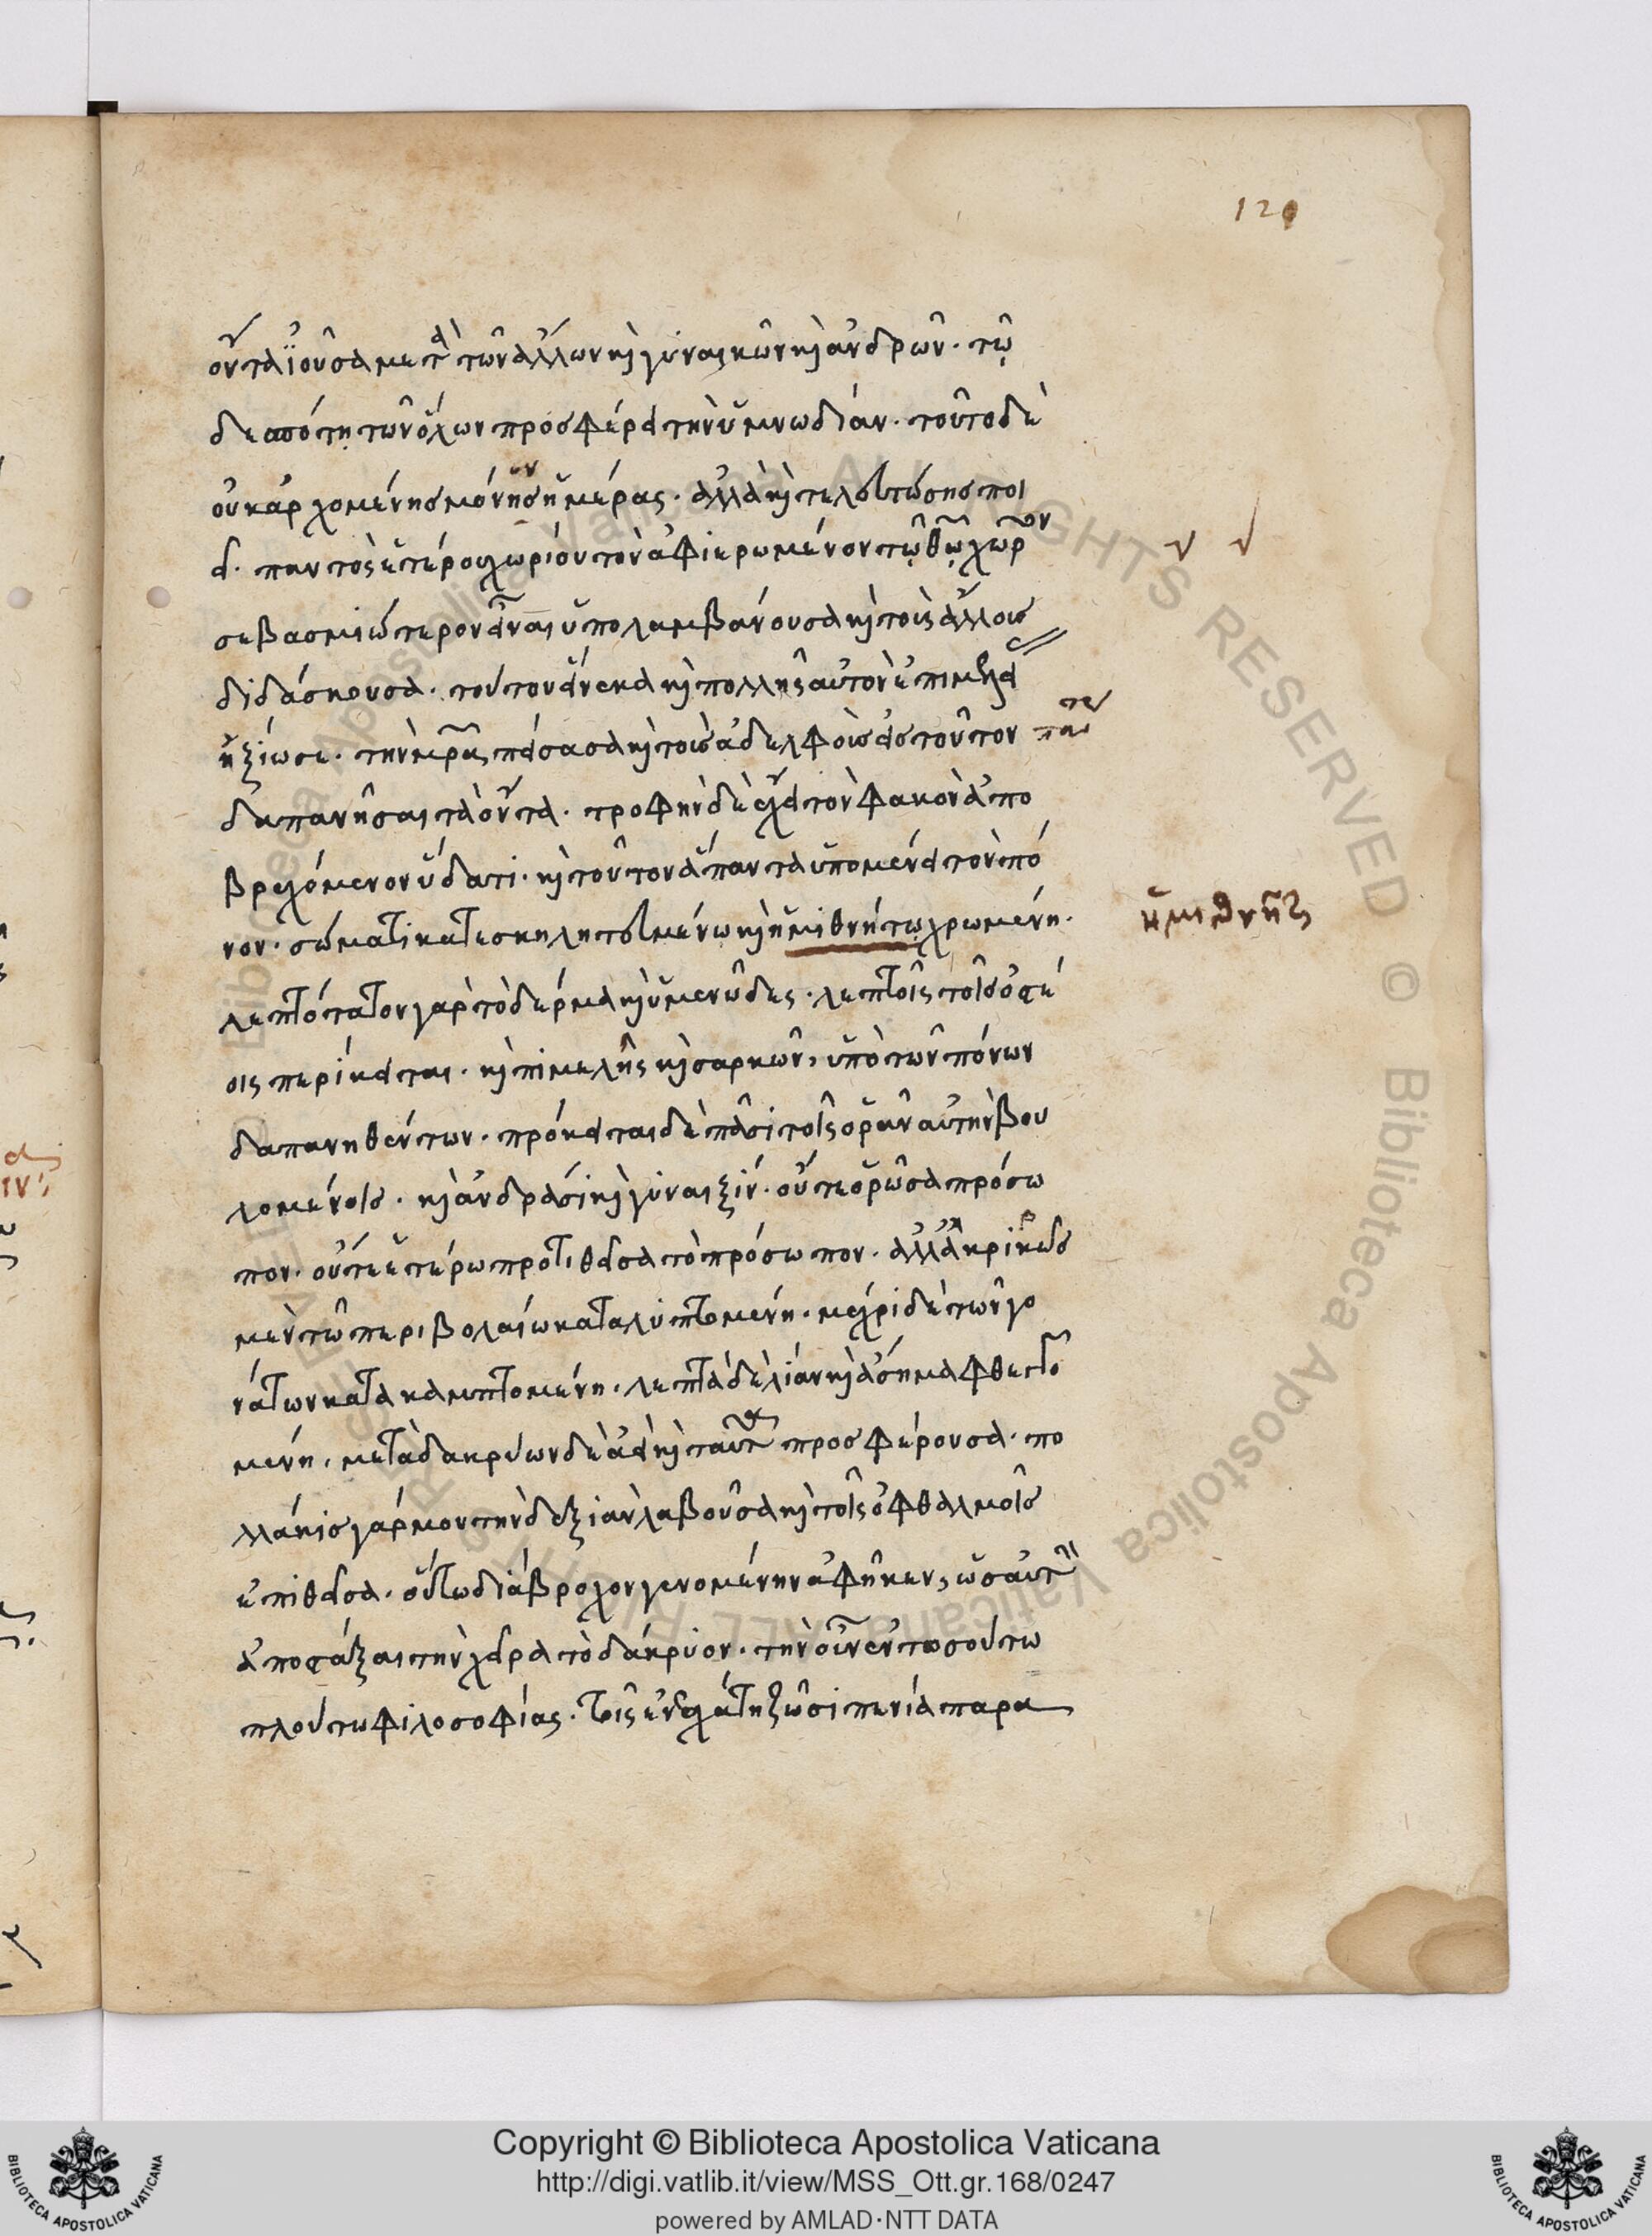 121
οῦνταϊοῦσα μετὰ τῶν ἄλλων καὶ γυναικῶν καὶ ἀνδρῶν· τῷ
δεσπότῃ τῶν ὅλων προσφέρει τὴν ὑμνωδίαν· τοῦτο δὲ
οὐκ ἀρχομένης μόνης ἡμέρας· ἀλλὰ καὶ τελευτώσης ποι
εῖ· παντὸς ἑτέρου χωρίου τὸν ἀφιερωμένον τῷ θῷ χῶρον
σεβασμιώτερον εἶναι ὑπολαμβάνουσα καὶ τοὺς ἄλλους
διδάσκουσα· τούτου εἵνεκα καὶ πολλῆς αὐτὸν ἐπιμελεί
ἠξίωσε· τὴν μρα πείσασα καὶ τοὺς ἀδελφοὺς εἰς τοῦτον
δαπανῆσαι τὰ ὄντα· τροφὴν δὲ ἔχει τὸν φακὸν ἀπο
βρεχόμενον ὕδατι· καὶ τοῦτον ἅπαντα ὑπομένει τὸν πό
νον· σώματι κατεσκηλητευμένω καὶ ἡμιθνήτῳ χρωμένη·
ἡμιθνὴς
λεπτότατον γὰρ τὸ δέρμα καὶ ὑμενῶδες· λεπτοῖς τοῖς ὀστέ
οις περίκειται· καὶ πιμελῆς καὶ σαρκῶν, ὑπὸ τῶν πόνων
δαπανηθέντων· πρόκειται δὲ πᾶσι τοῖς ὁρᾶν αὐτὴν βου
λομένοις· καὶ ἀνδράσι καὶ γυναιξίν· οὔτε ὁρῶσα πρόσω
πον· οὔτε ἑτέρω προτιθεῖσα τὸ πρόσωπον· ἀλλ' ἀκριβῶς
μὲν τῶ περιβολαίω καταλυπτομένη· μέχρι δὲ τῶν γο
νάτων κατακαμπτομένη· λεπτὰ δὲ λίαν καὶ ἄσημα φθεγγο
μένη, μετὰ δακρύων δὲ ἀεὶ καὶ ταῦτα προσφέρουσα· πο
λλάκις γάρ μου τὴν δεξιὰν λαβοῦσα καὶ τοῖς ὀφθαλμοῖς
ἐπιθεῖσα· οὕτω διάβροχον γενομένην ἀφῆκεν, ὡς αὐτὴν
ἀποστάξαι τὴν χεῖρα τὸ δάκρυον· τὴν οὖν ἐν τοσούτω
πλούτω φιλοσοφίας· τοῖς ἐνδεχάτη ζῶσι πενία παρα